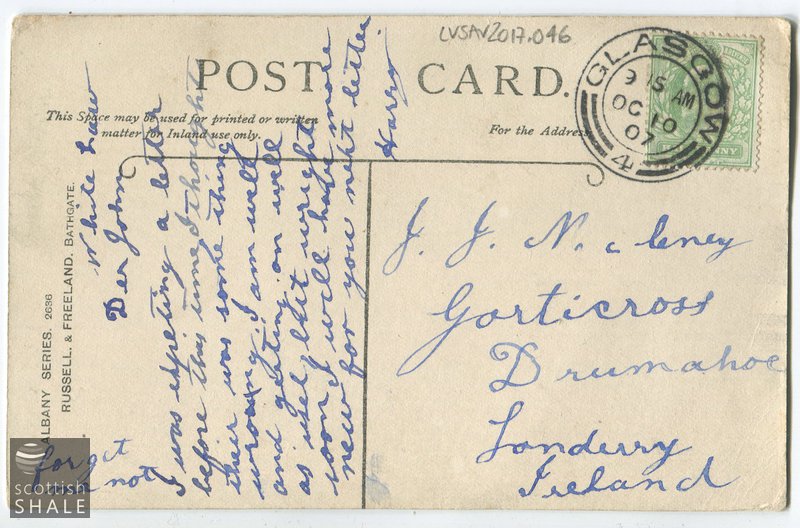 LVSAV2017.046
POST CARD.
This Space may be used for printed or written
matter for Inland use only.
For the Address
GLASGOW
9 15 AM
OC 10
07
4
ALBANY SERIES. 2636
RUSSELL, & FREELAND. BATHGATE.
White Law
Der John
I was expeting a letter
before this time I thought
their was some thing
wrong. I am well
and getting on well
as usel but wright
soon I will have more
new for you next letter
Harry
forget
me not
J. J. Mc
Gorticross
Drumahoe
Londerry
Ireland
scottish
SHALE